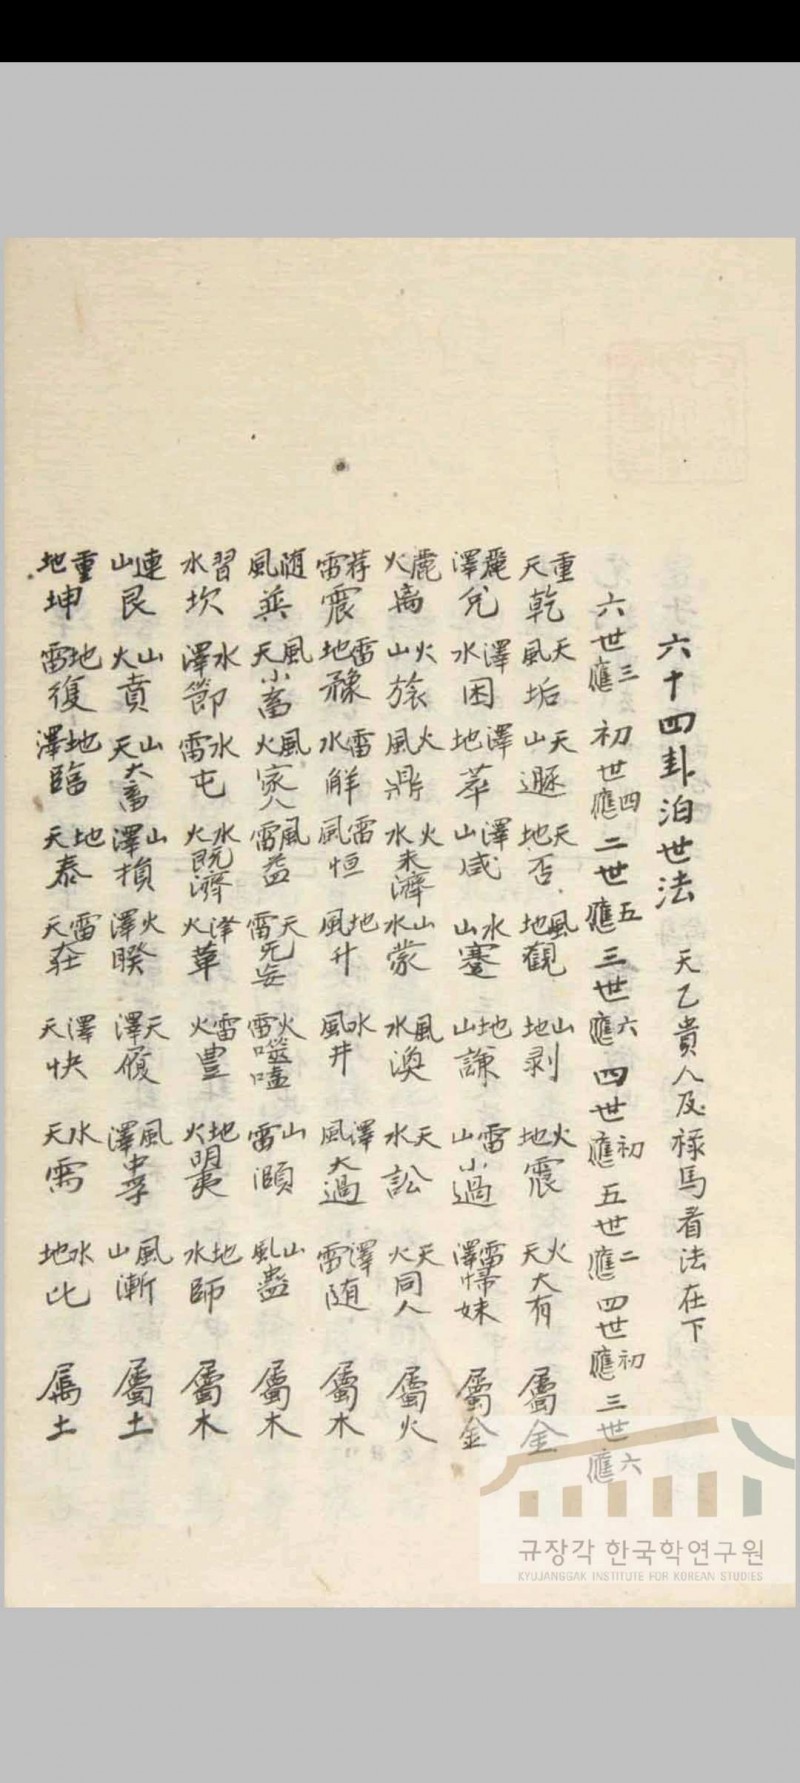 六十四卦泊世法 天乙貴人及祿馬看法在下
六世應三 初世應四 二世應五 三世應六 四世應初 五世應二 四世應初 三世應六
重天乾 天風垢 天山遯 天地否 風地觀 山地剥 火地震 火天大有 屬金
麗澤兌 澤水困 澤地萃 澤山咸 水山蹇 地山謙 雷山小過 雷澤歸妹 屬金
麗火离 火山旅 火風鼎 火水未濟 山水蒙 風水渙 天水訟 天火同人 屬火
荐雷震 雷地豫 雷水解 雷風恒 地風升 水風井 澤風大過 澤雷随 屬木
随風巽 風天小畜 風火家人 風雷益 天雷无妄 火雷噬嗑 山雷頤 山風蠱 屬木
習水坎 水澤節 水雷屯 水火既濟 澤火革 雷火豊 地火明夷 地水師 屬木
連山艮 山火賁 山天大畜 山澤損 火澤睽 天澤履 風澤中孚 風山漸 屬土
重地坤 地雷復 地澤臨 地天泰 雷天 澤天快 水天需 水地比 属土
규장각 한국학연구원
KYUJANGGAK INSTITUTE FOR KOREAN STUDIES